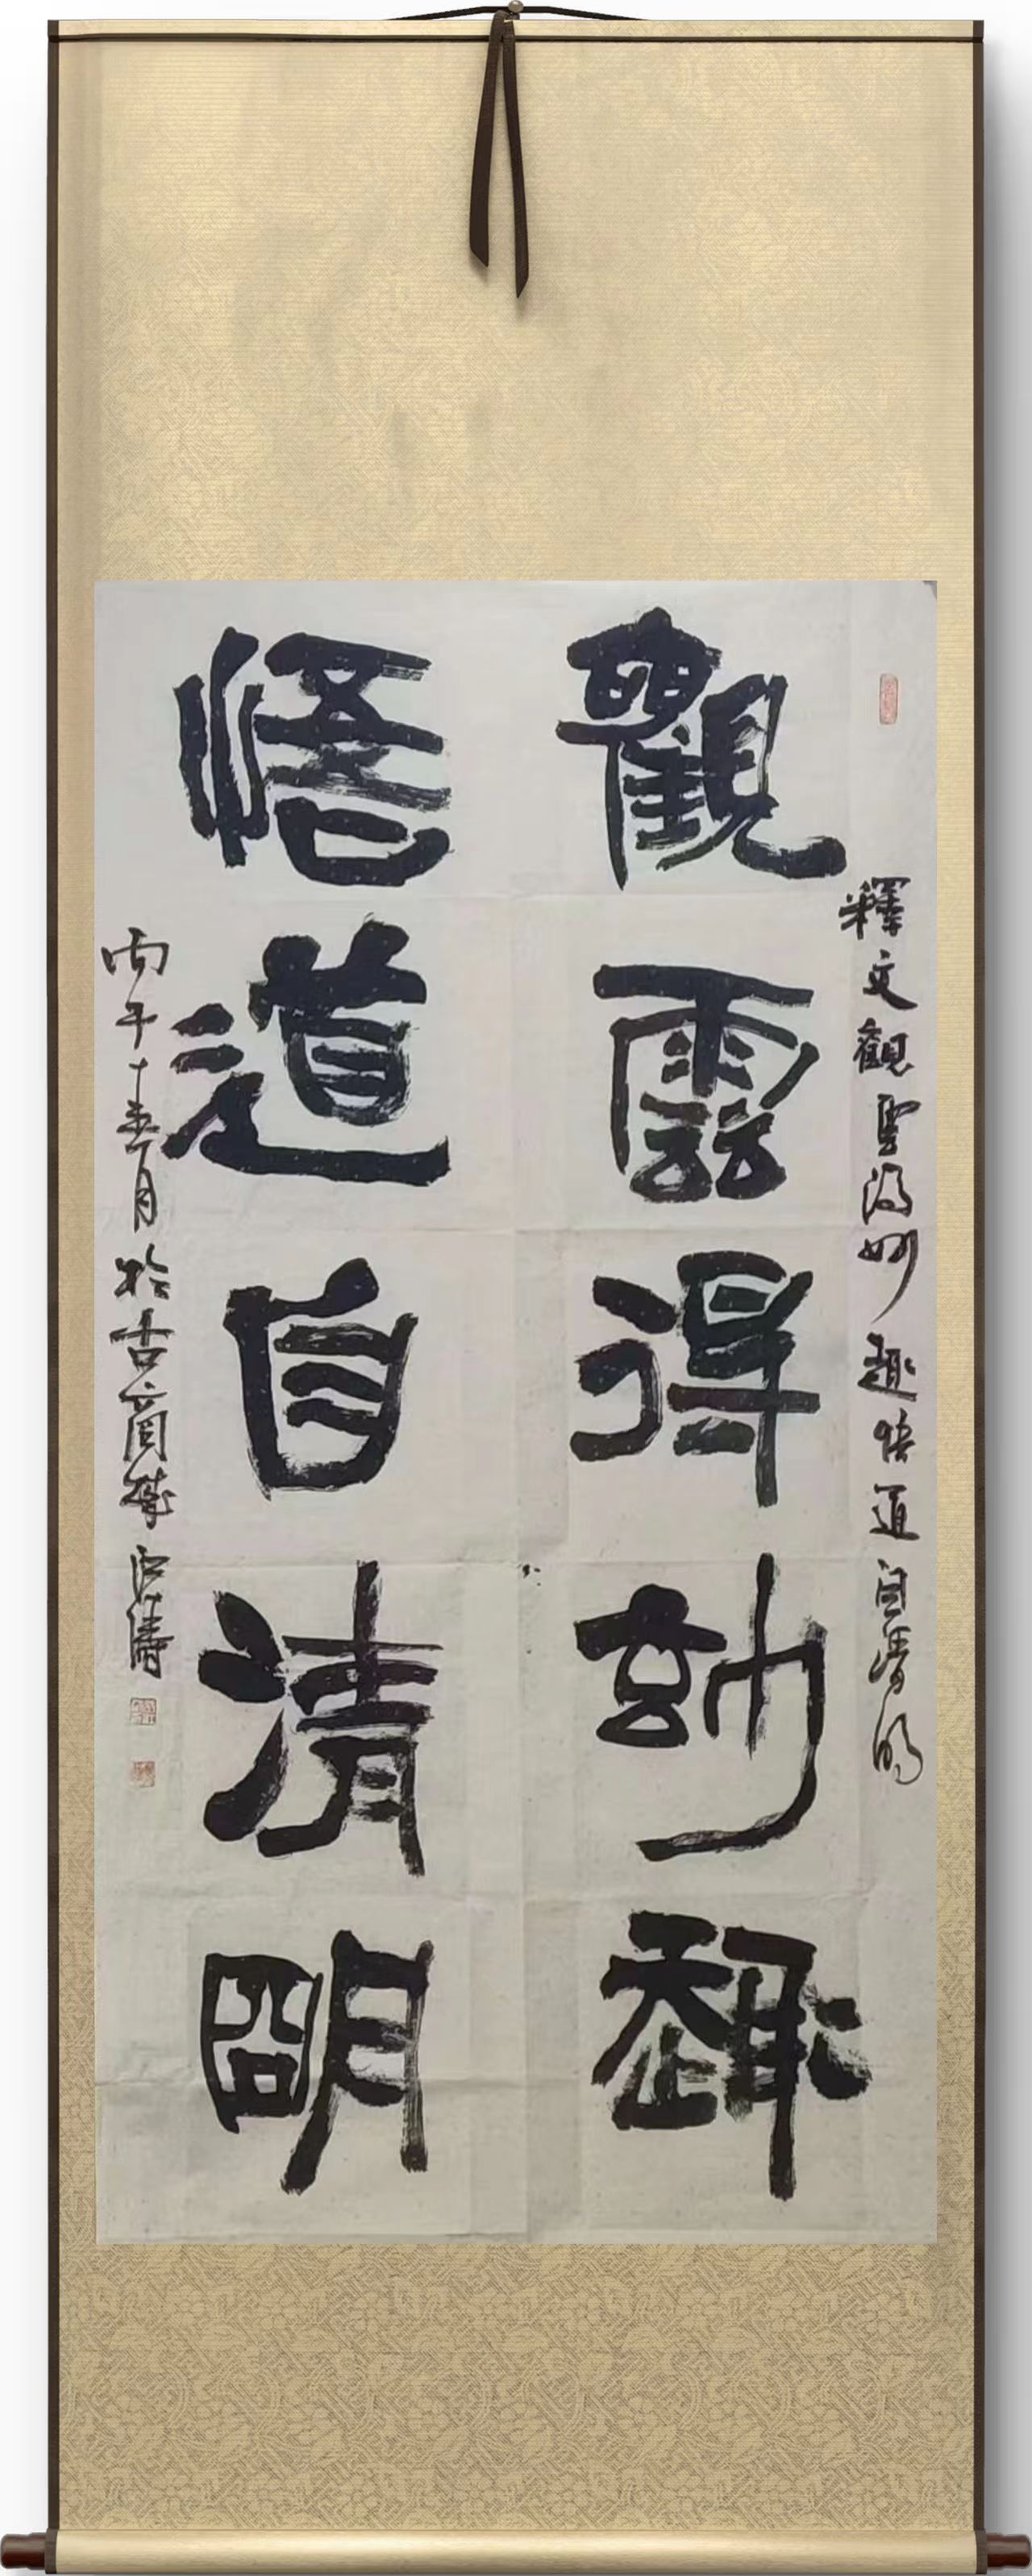 釋文觀雲得妙趣悟道自清明
觀雲得玅趣
悟道自清朙
丙午春月於古商城濤